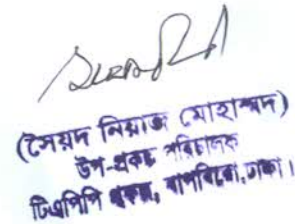 (সৈয়দ নিয়াজ মোহাম্মদ)
উপ-প্রকল্প পরিচালক
টিএপিপি প্রকল্প, বাপবিবো, ঢাকা।